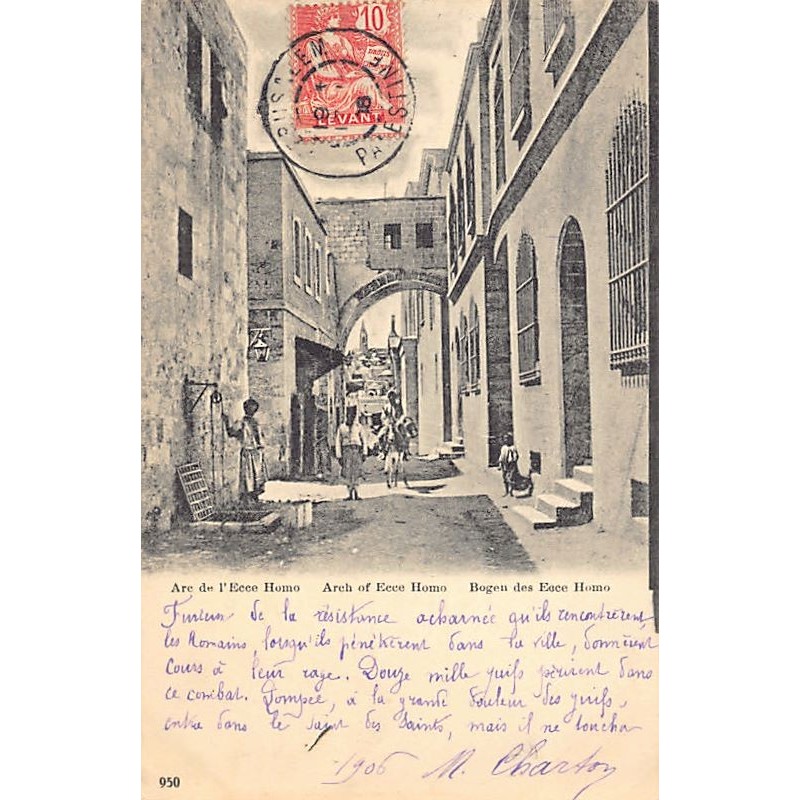 10
LEVANT
JERUSALEM
PALESTINE
Arc de l'Ecce Homo Arch of Ecce Homo Bogen des Ecce Homo
Furieux de la résistance acharnée qu'ils rencontrèrent,
les Romains, lorsqu'ils pénétrèrent dans la ville, donnèrent
cours à leur rage. Douze mille juifs périrent dans
ce combat. Pompée, à la grande douleur des juifs,
entra dans le Saint des Saints, mais il ne toucha
1906 M. Charton
950